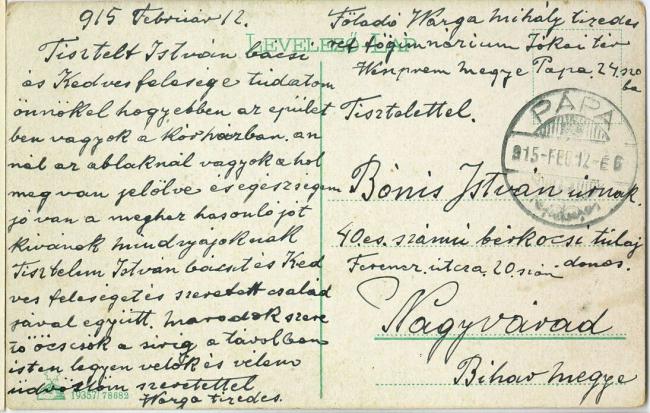 915 Február 12.
Tisztelt István bácsi
és Kedves felesége tudatom
önnökel hogy ebben az épület
ben vagyok a kórházban. an
nál az ablaknál vagyok ahol
meg van jelölve és egészségem
jó van a meghez hasonló jót
kivánok mindnyájoknak
Tisztelem István bácsit és Ked
ves feleségét és szeretett család
jával együtt. maradok szere
tő öcscsök a sirig a távolban
isten legyen velök és velem
üdvözlöm szeretettel
Warga tizedes.
19357/78682
LEVELEZŐ-LAP
Föladó Warga Mihály tizedes
ref főgimnázium Jókai tér
Veszprem megye Pápa 24. szo
ba
Tisztelettel.
PÁPA
915-FEB 12-É 6
Bónis István úrnak
40es. számú bérkocsi tulaj
donos.
Ferencz utcza, 20. szám
Nagyvárad
Bihar megye